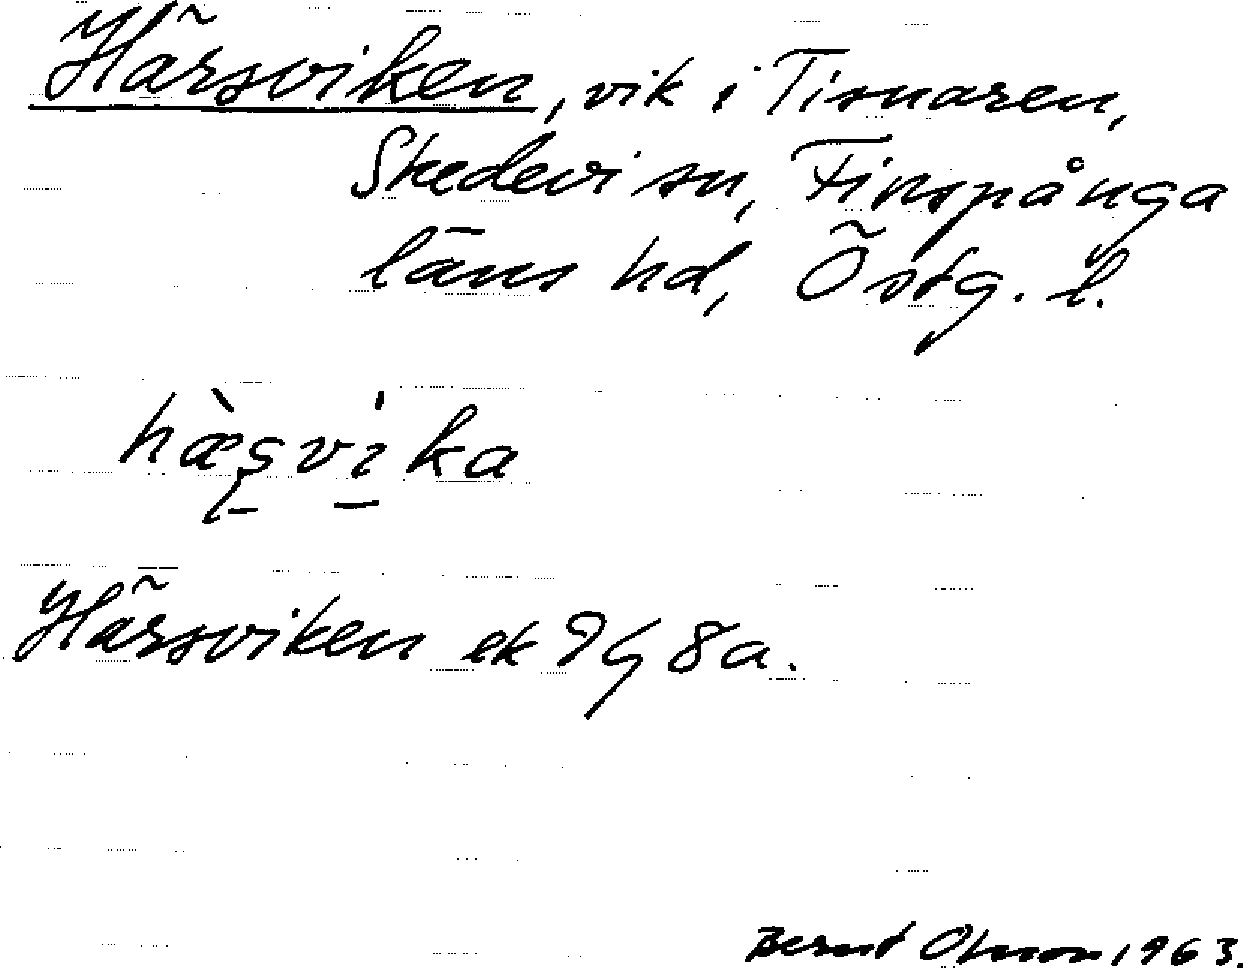 Härsviken, vik i Tisnaren,
Skedevi sn, Finspånga
läns hd, Östg. l.
hæ̀ʂvi̇ka
Härsviken ek 9G 8a.
Bernt Olsson 1963.